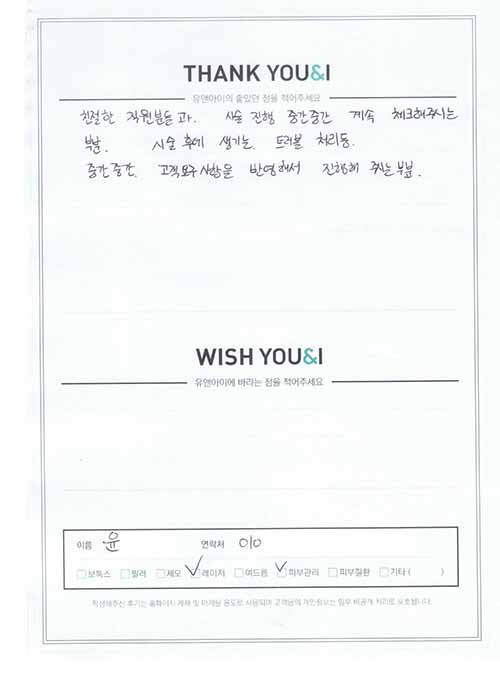 THANK YOU&I
유앤아이의 좋았던 점을 적어주세요
친절한 직원분들과. 시술 진행 중간중간 계속 체크해주시는
부분. 시술 후에 생기는. 트러블 처리등.
중간중간. 고객요구사항을 반영해서 진행해 주시는 부분.
WISH YOU&I
유앤아이에 바라는 점을 적어주세요
이름 윤 연락처 010
보톡스 필러 제모 레이저 여드름 피부관리 피부질환 기타 ( )
작성해주신 후기는 홈페이지 게재 및 마케팅 용도로 사용되며 고객님의 개인정보는 일부 비공개 처리로 보호됩니다.